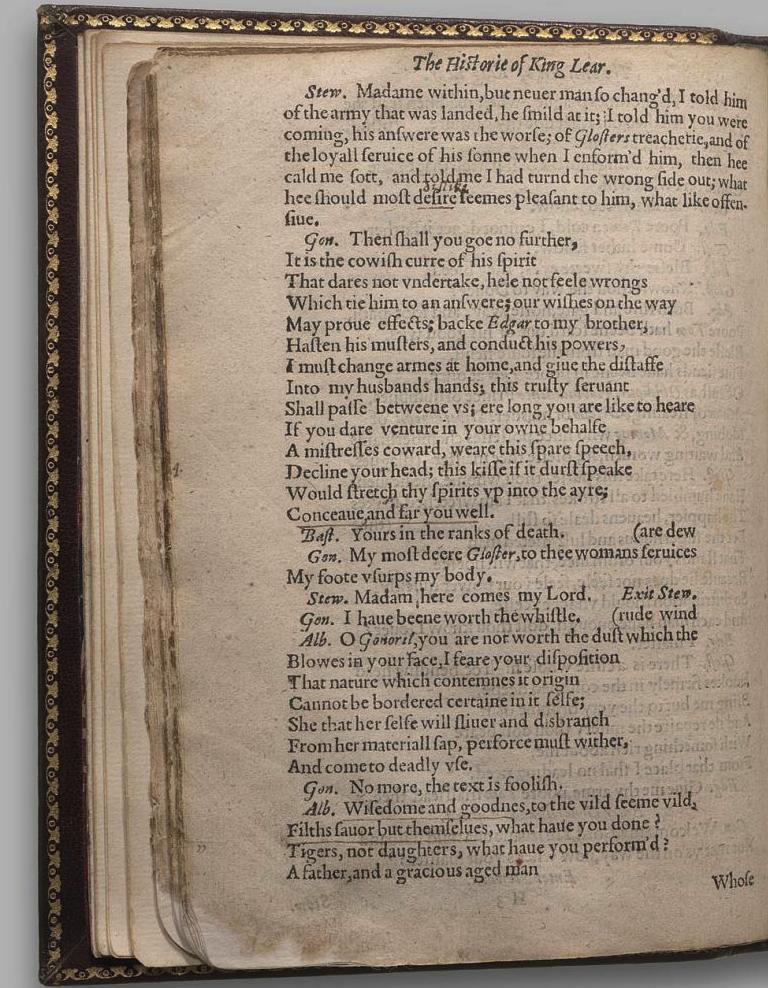 The Historie of King Lear.
Stew. Madame within, but neuer man ſo chang'd, I told him
of the army that was landed, he ſmild at it; I told him you were
coming, his anſwere was the worſe; of Gloſters treacherie, and of
the loyall ſeruice of his ſonne when I enform'd him, then hee
cald me ſott, and told me I had turnd the wrong ſide out; what
diſlike
hee ſhould moſt deſire ſeemes pleaſant to him, what like offen-
ſiue.
Gon. Then ſhall you goe no further,
It is the cowiſh curre of his ſpirit
That dares not vndertake, hele not feele wrongs
Which tie him to an anſwere; our wiſhes on the way
May proue effects; backe Edgar to my brother,
Haſten his muſters, and conduct his powers,
I muſt change armes at home, and giue the diſtaffe
Into my husbands hands; this truſty ſeruant
Shall paſſe betweene vs; ere long you are like to heare
If you dare venture in your owne behalfe
A miſtreſſes coward, weare this ſpare ſpeech,
Decline your head; this kiſſe if it durſt ſpeake
Would ſtretch thy ſpirits vp into the ayre;
Conceaue, and far you well.
Baſt. Yours in the ranks of death. (are dew
Gon. My moſt deere Gloſter, to thee womans ſeruices
My foote vſurps my body.
Stew. Madam, here comes my Lord. Exit Stew.
Gon. I haue beene worth the whiſtle. (rude wind
Alb. O Gonoril, you are not worth the duſt which the
Blowes in your face, I feare your diſpoſition
That nature which contemnes it origin
Cannot be bordered certaine in it ſelfe;
She that her ſelfe will ſliuer and disbranch
From her materiall ſap, perforce muſt wither,
And come to deadly vſe.
Gon. No more, the text is fooliſh.
Alb. Wiſedome and goodnes, to the vild ſeeme vild,
Filths ſauor but themſelues, what haue you done?
Tigers, not daughters, what haue you perform'd?
A father, and a gracious aged man
Whoſe